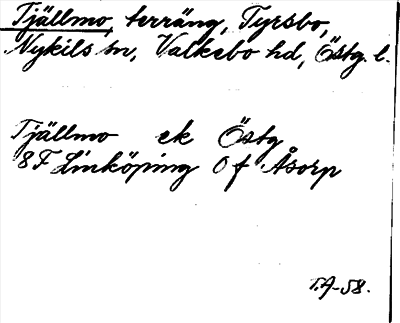 Tjällmo, terräng, Tyrsbo,
Nykils sn, Valkebo hd, Östg. l.
Tjällmo ek Östg
8F Linköping 0 f Åsorp
T.A-58.